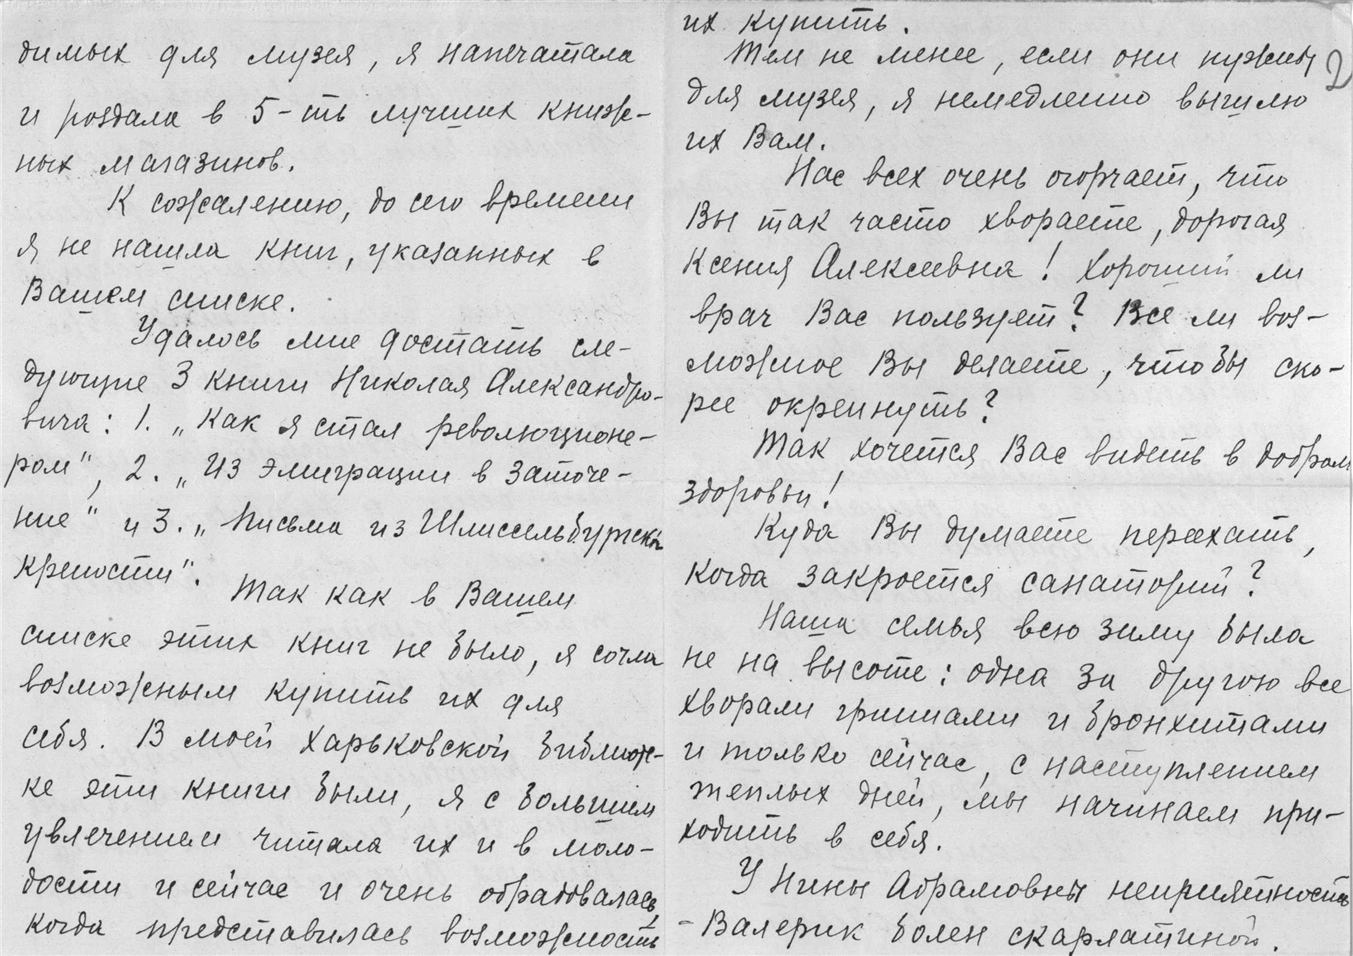 димых для музея, я напечатала
и роздала в 5-ть лучших книж-
ных магазинов.
К сожалению, до сего времени
я не нашла книг, указанных в
Вашем списке.
Удалось мне достать сле-
дующие 3 книги Николая Александро-
вича: 1. „Как я стал революционе-
ром", 2. „Из эмиграции в заточе-
ние" и 3. „Письма из Шлиссельбургской
крепости".
Так как в Вашем
списке этих книг не было, я сочла
возможным купить их для
себя. В моей Харьковской библиоте-
ке эти книги были, я с большим
увлечением читала их и в моло-
дости и сейчас и очень обрадовалась,
когда представилась возможность
их купить.
2
Тем не менее, если они нужны
для музея, я немедленно вышлю
их Вам.
Нас всех очень огорчает, что
Вы так часто хвораете, дорогая
Ксения Алексеевна! Хороший ли
врач Вас пользует? Все ли воз-
можное Вы делаете, чтобы ско-
рее окрепнуть?
Так хочется Вас видеть в добром
здоровьи!
Куда Вы думаете переехать,
когда закроется санаторий?
Наша семья всю зиму была
не на высоте: одна за другою все
хворали гриппами и бронхитами
и только сейчас, с наступлением
теплых дней, мы начинаем при-
ходить в себя.
У Нины Абрамовны неприятность
- Валерик болен скарлатиной.